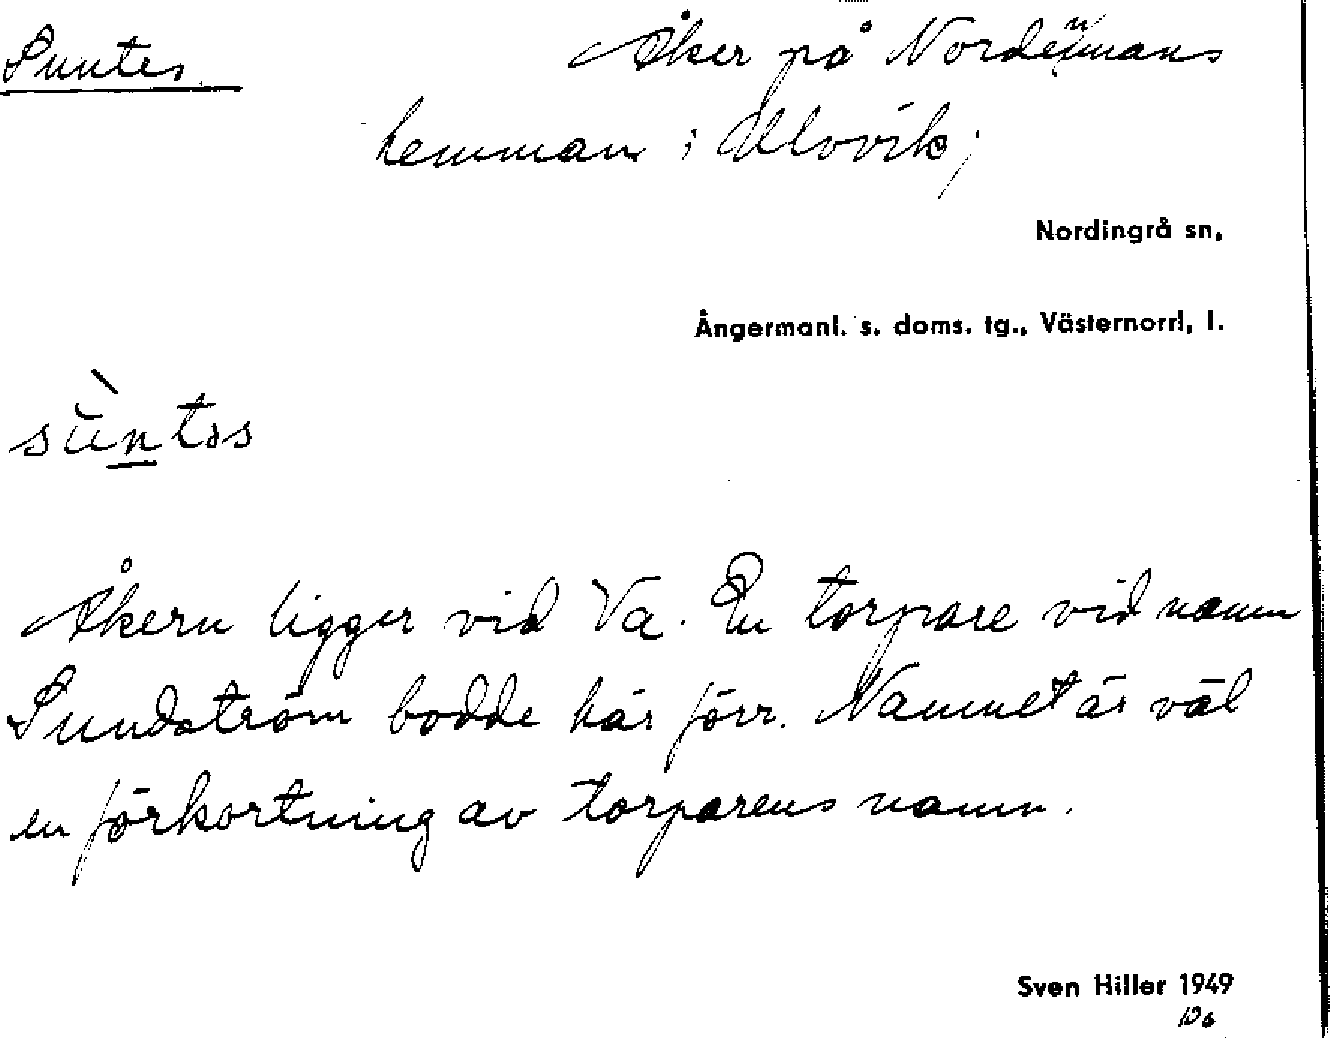 Suntes Åker på Nordenmans
hemman i Ulvvik,
Nordingrå sn.
Ångermanl. s. doms. tg., Västernorrl. l.
Åkern ligger vid Va. En torpare vid namn
Sundström bodde här förr. Namnet är väl
en förkortning av torparens namn.
Sven Hiller 1949